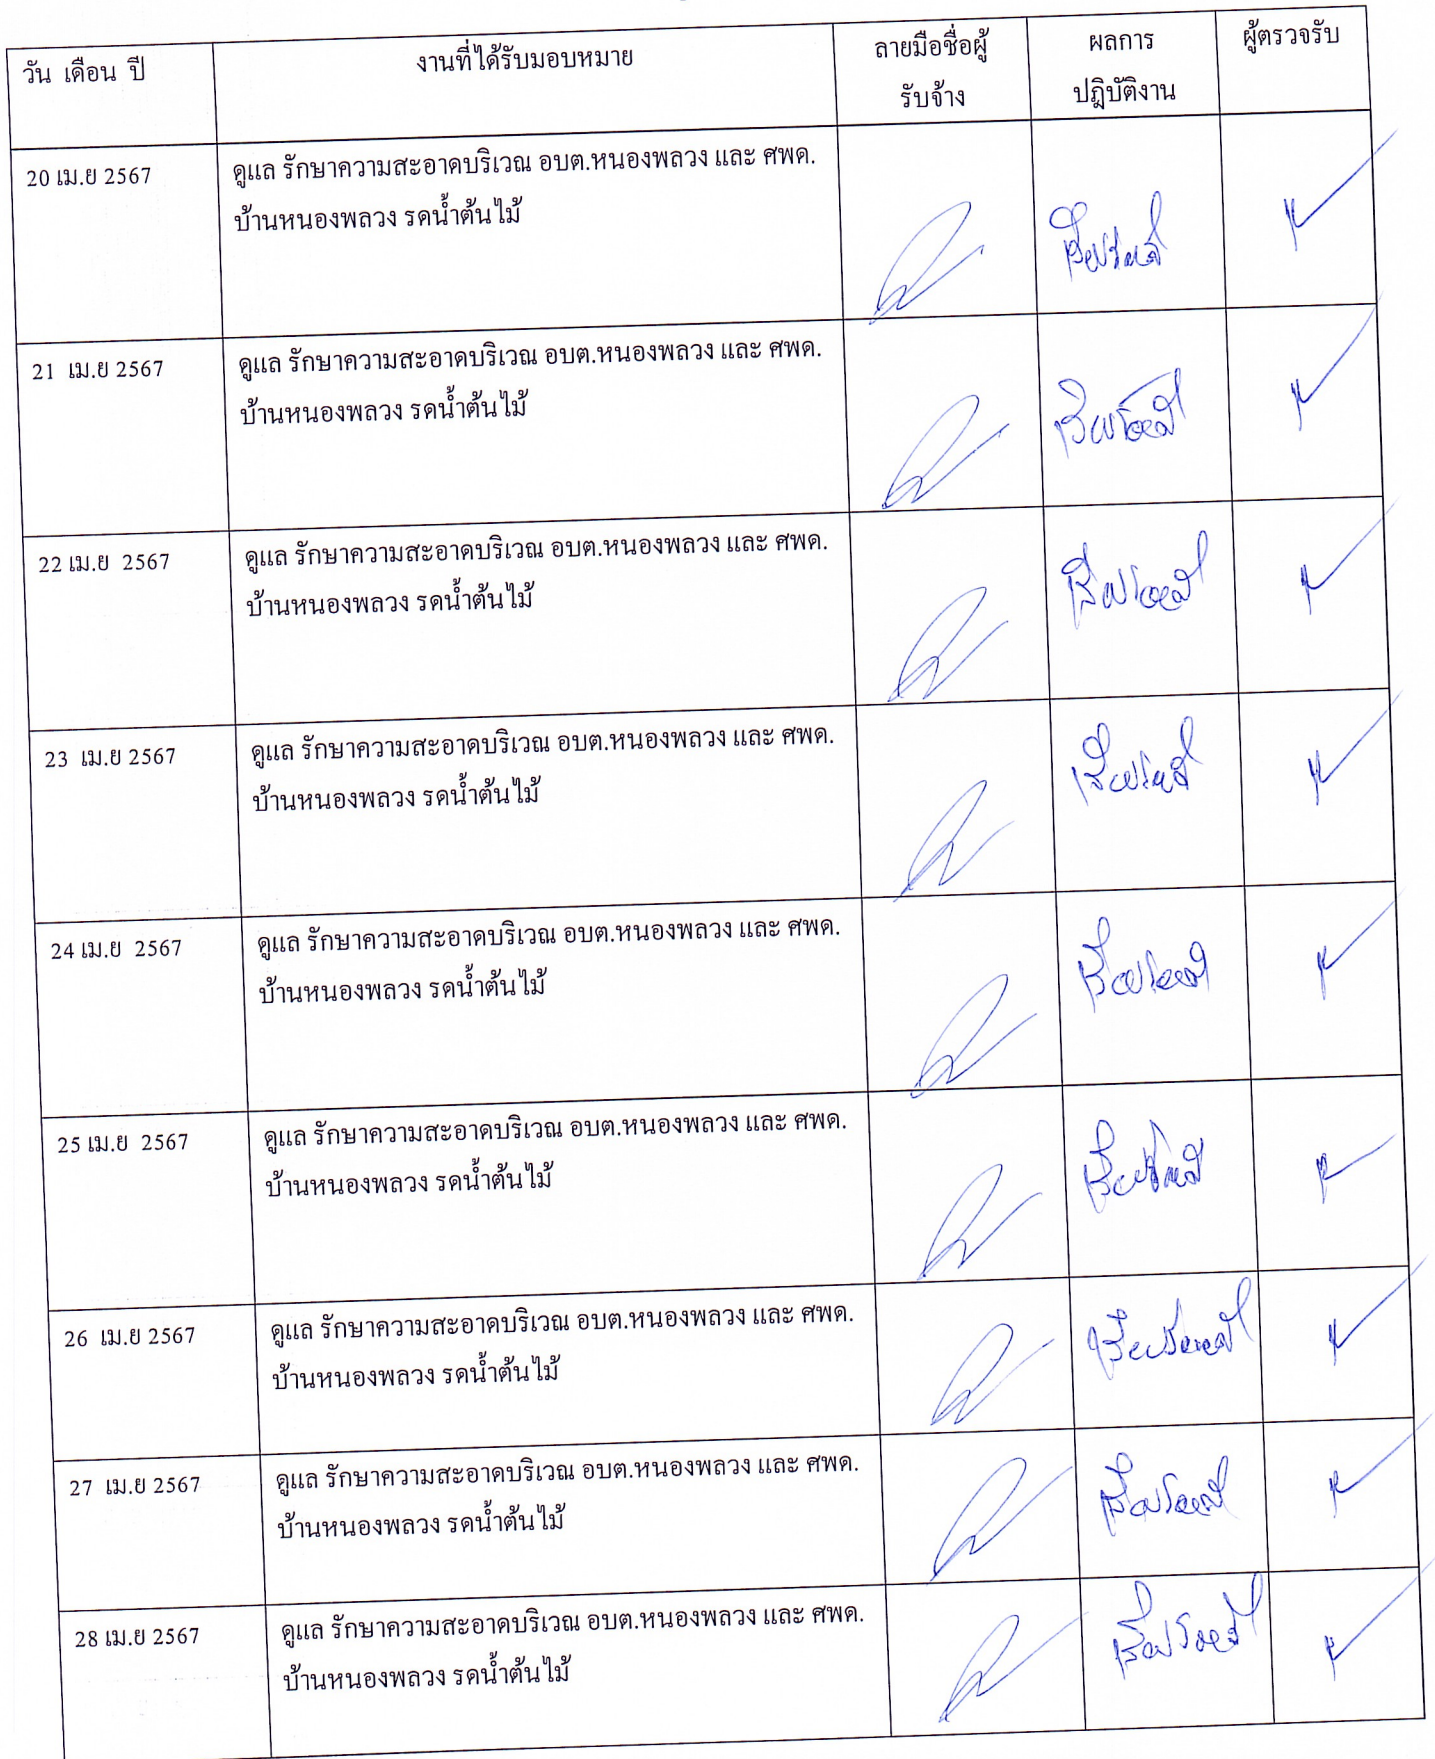 วัน เดือน ปี งานที่ได้รับมอบหมาย ลายมือชื่อผู้รับจ้าง ผลการปฎิบัติงาน ผู้ตรวจรับ
20 เม.ย 2567 ดูแล รักษาความสะอาดบริเวณ อบต.หนองพลวง และ ศพด.
บ้านหนองพลวง รดน้ำต้นไม้
เรียบร้อยดี
21 เม.ย 2567 ดูแล รักษาความสะอาดบริเวณ อบต.หนองพลวง และ ศพด.
บ้านหนองพลวง รดน้ำต้นไม้
เรียบร้อยดี
22 เม.ย 2567 ดูแล รักษาความสะอาดบริเวณ อบต.หนองพลวง และ ศพด.
บ้านหนองพลวง รดน้ำต้นไม้
เรียบร้อยดี
23 เม.ย 2567 ดูแล รักษาความสะอาดบริเวณ อบต.หนองพลวง และ ศพด.
บ้านหนองพลวง รดน้ำต้นไม้
เรียบร้อยดี
24 เม.ย 2567 ดูแล รักษาความสะอาดบริเวณ อบต.หนองพลวง และ ศพด.
บ้านหนองพลวง รดน้ำต้นไม้
เรียบร้อยดี
25 เม.ย 2567 ดูแล รักษาความสะอาดบริเวณ อบต.หนองพลวง และ ศพด.
บ้านหนองพลวง รดน้ำต้นไม้
เรียบร้อยดี
26 เม.ย 2567 ดูแล รักษาความสะอาดบริเวณ อบต.หนองพลวง และ ศพด.
บ้านหนองพลวง รดน้ำต้นไม้
เรียบร้อยดี
27 เม.ย 2567 ดูแล รักษาความสะอาดบริเวณ อบต.หนองพลวง และ ศพด.
บ้านหนองพลวง รดน้ำต้นไม้
เรียบร้อยดี
28 เม.ย 2567 ดูแล รักษาความสะอาดบริเวณ อบต.หนองพลวง และ ศพด.
บ้านหนองพลวง รดน้ำต้นไม้
เรียบร้อยดี